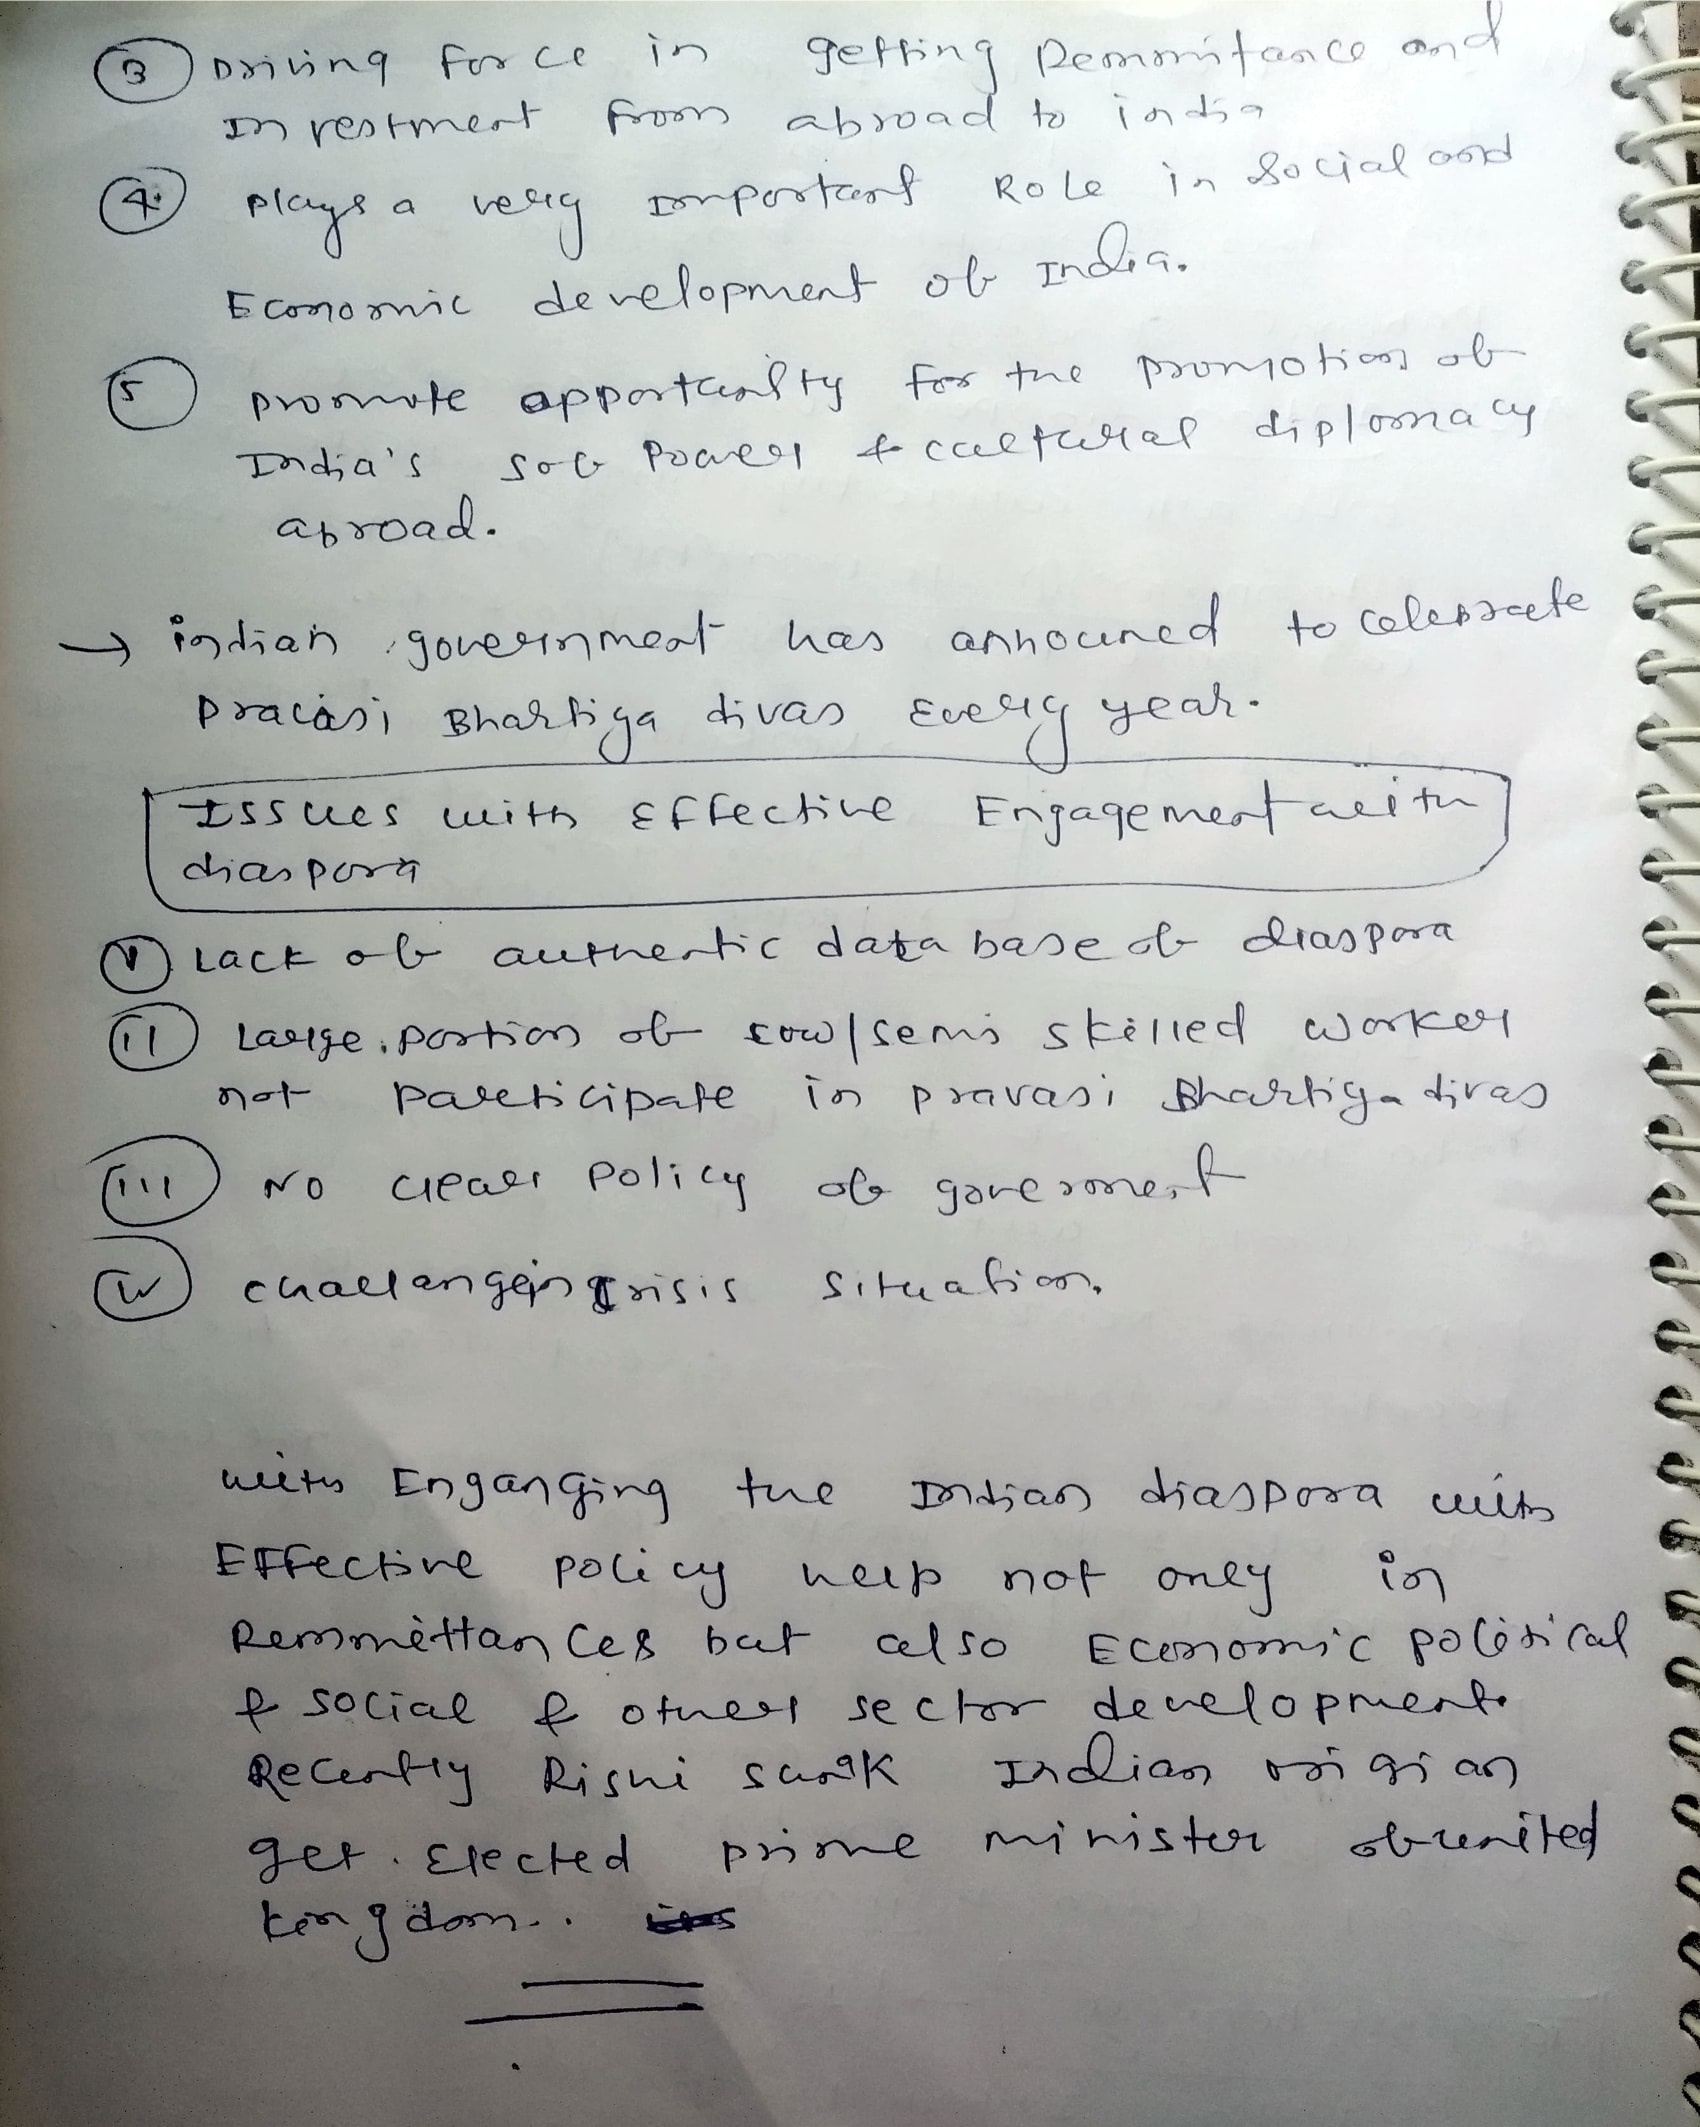 3 Driving force in getting Remmitance and
Investment from abroad to india
4. plays a very important Role in Social and
Economic development of India.
5 promote opportunity for the promotion of
India's sof Power & cultural diplomacy
abroad.
→ indian government has announed to celebrate
Pravasi Bhartiya divas Every year.
Issues with Effective Engagement with
diaspora
i Lack of authentic data base of diaspora
ii Large portion of low/semi skilled worker
not participate in pravasi Bhartiya divas
iii No clear policy of government
iv challangein crisis situation.
with Enganging the Indian diaspora with
Effective policy help not only in
Remmittances but also Economic political
& social & other sector development.
Recently Rishi sunak Indian origian
get. Elected prime minister of united
kingdom..